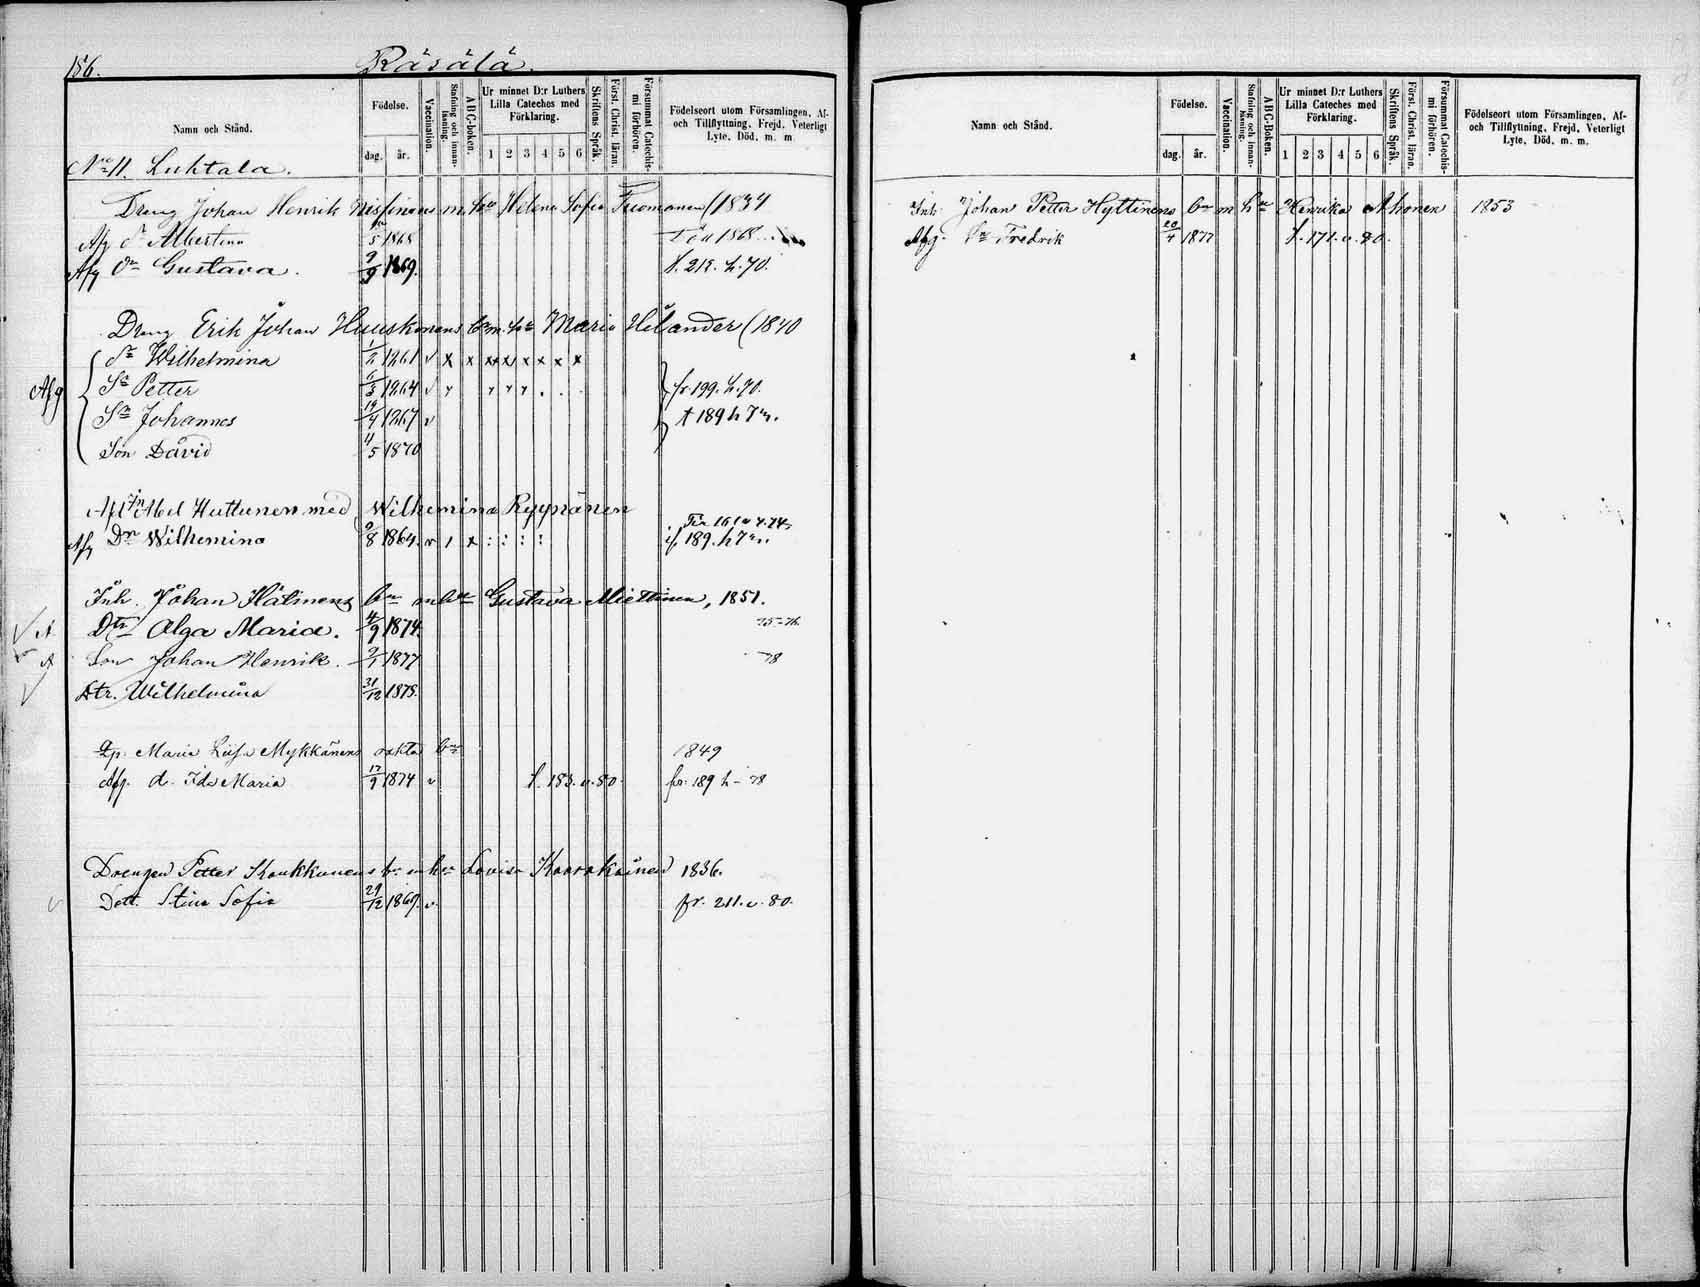 156.
Räsälä.
Namn och Stånd.
Födelse.
dag.
år.
Vaccination.
Stafning och innanläsning.
ABC-boken.
Ur minnet D:r Luthers Lilla Cateches med Förklaring.
1 2 3 4 5 6
Skriftens Språk.
Först. Christ. läran.
Försummat Catechismi förhören.
Födelseort utom Församlingen, Af- och Tillflyttning, Frejd, Veterligt Lyte, Död. m. m.
No 11. Luhtala.
Dreng Johan Henrik Nissinens m. hu Helena Sofia Tuomanen (1834
Afg dr Albertina 5 1868
Afg dr Gustava. 9/9 1869. f. 212. h. 70.
Dreng Erik Johan Huuskonens bn m. hu Maria Helander (1840
Dr Wilhelmina 1/2 1861 v x x x x x x x x
Afg
Sn Petter 6/3 1864 v fr. 199. h. 70.
Sn Johannes 19/4 1867 v t 189 h 7
Son David 4/5 1870
Abel Huttunen med Wilhemina Ryynänen
Afg Dr Wilhemina 9/8 1864. 189. h 7
Inh. Johan Hälinens bn m hu Gustava Miettinen, 1851.
A Dtr Olga Maria. 4/9 1874. 75-76
A Son Johan Henrik. 9/1 1877 78
Dtr. Wilhelmina 31/12 1878.
Maria Lisa Mykkänens oäkta bn 1849
Afg. d. Ida Maria 17/9 1874 v f. 183. v. 80. fr. 189 h - 78
Drengen Petter Kaukkanens bn m hu Lovisa Kaarakainen 1836.
Dott. Stina Sofia 29/12 1867. v. fr. 211. v. 80.
Namn och Stånd.
Födelse.
dag.
år.
Vaccination.
Stafning och innanläsning.
ABC-Boken.
Ur minnet D:r Luthers Lilla Cateches med Förklaring.
1 2 3 4 5 6
Skriftens Språk.
Först. Christ. läran.
Försummat Catechismi förhören.
Födelseort utom Församlingen, Af- och Tillflyttning, Frejd, Veterligt Lyte, Död, m. m.
Inh. Johan Petter Hyttinens bn m hu Henrika Ahonen 1853
Afg. Sn Fredrik 20/4 1877 f. 171. v. 80.